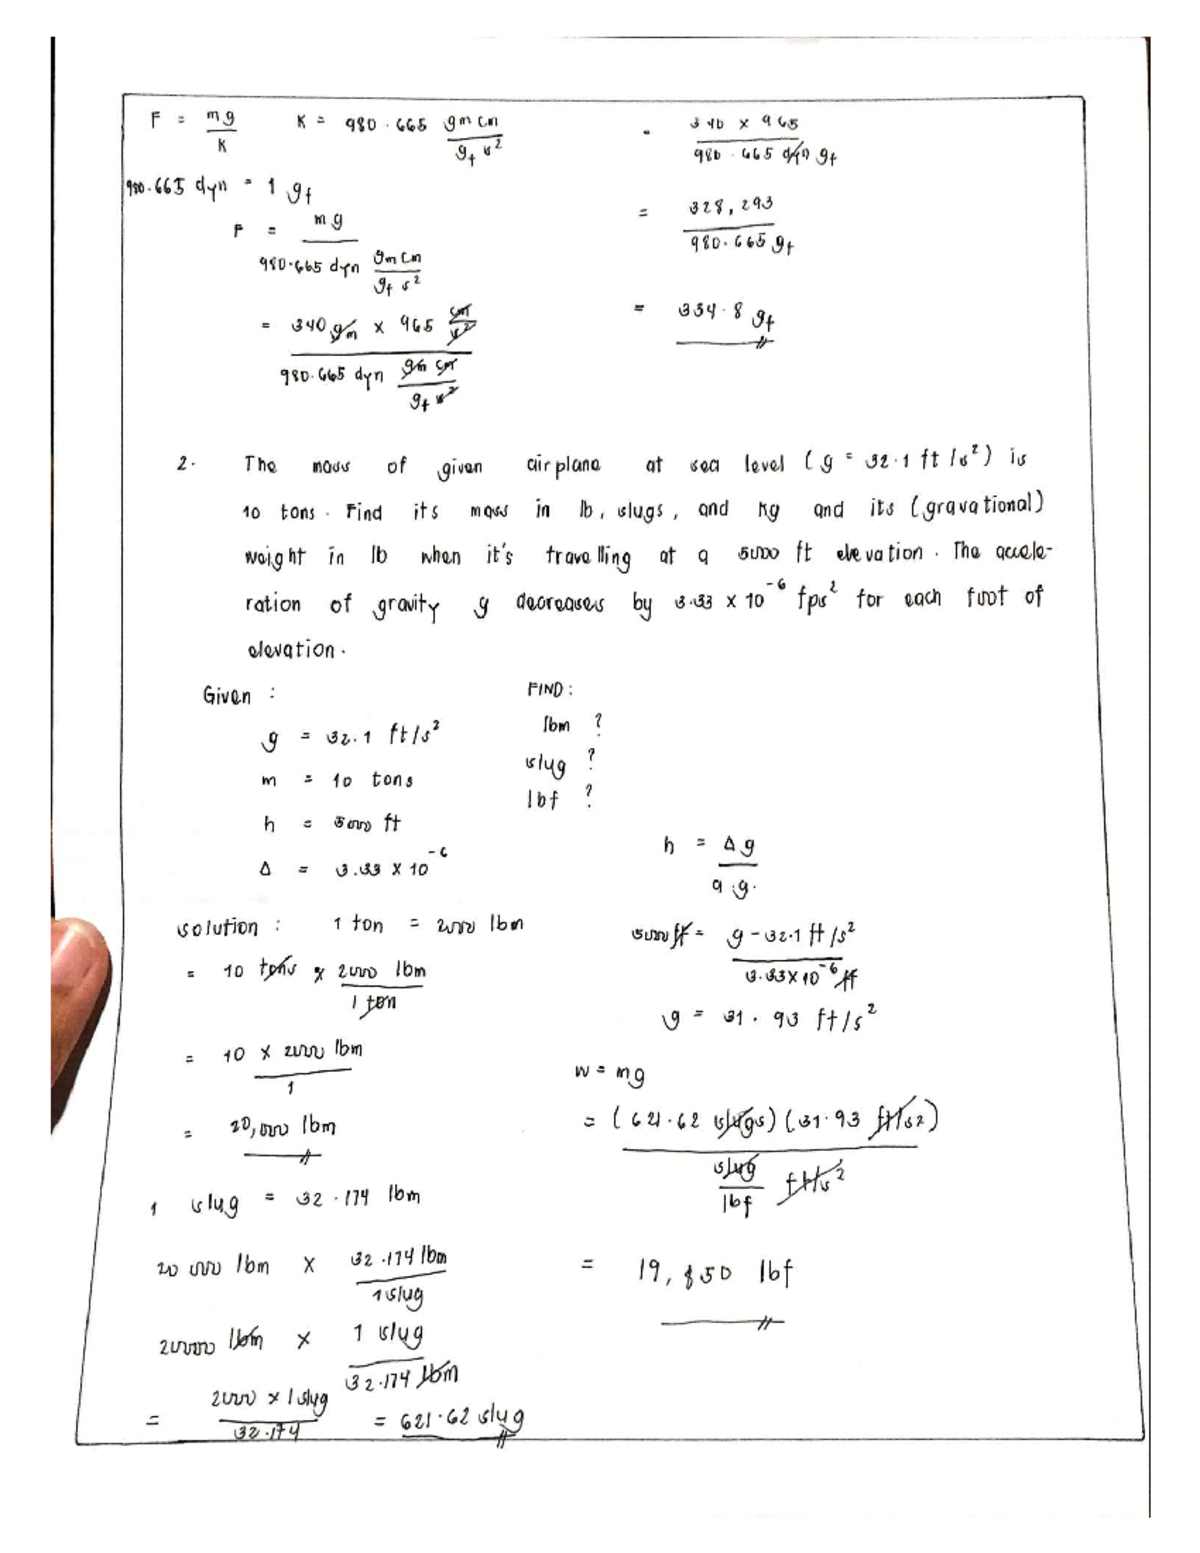 F = mg / K    K = 980.665 gm cm / gf s²
980.665 dyn = 1 gf
F = mg / 980.665 dyn gm cm / gf s²
= 340 gm x 965 cm / s² / 980.665 dyn gm cm / gf s²
= 340 x 965 / 980.665 dyn gf
= 328,293 / 980.665 gf
= 334.8 gf
2. The mass of given airplane at sea level (g = 32.1 ft/s²) is
10 tons. Find its mass in lb, slugs, and kg and its (gravational)
weight in lb when it's travelling at a 5000 ft elevation. The accele-
ration of gravity g decreases by 3.33 x 10⁻⁶ fps² for each foot of
elevation.
Given :
g = 32.1 ft/s²
m = 10 tons
h = 5000 ft
Δ = 3.33 x 10⁻⁶
FIND :
lbm ?
slug ?
lbf ?
solution : 1 ton = 2000 lbm
= 10 tons x 2000 lbm / 1 ton
= 10 x 2000 lbm / 1
= 20,000 lbm
1 slug = 32.174 lbm
20 000 lbm x 32.174 lbm / 1 slug
20000 lbm x 1 slug / 32.174 lbm
= 2000 x 1 slug / 32.174 = 621.62 slug
h = Δg / a.g.
5000 ft = g - 32.1 ft/s² / 3.33x10⁻⁶ ft
g = 31.93 ft/s²
w = mg
= (621.62 slugs)(31.93 ft/s2) / slug / lbf ft/s²
= 19,850 lbf